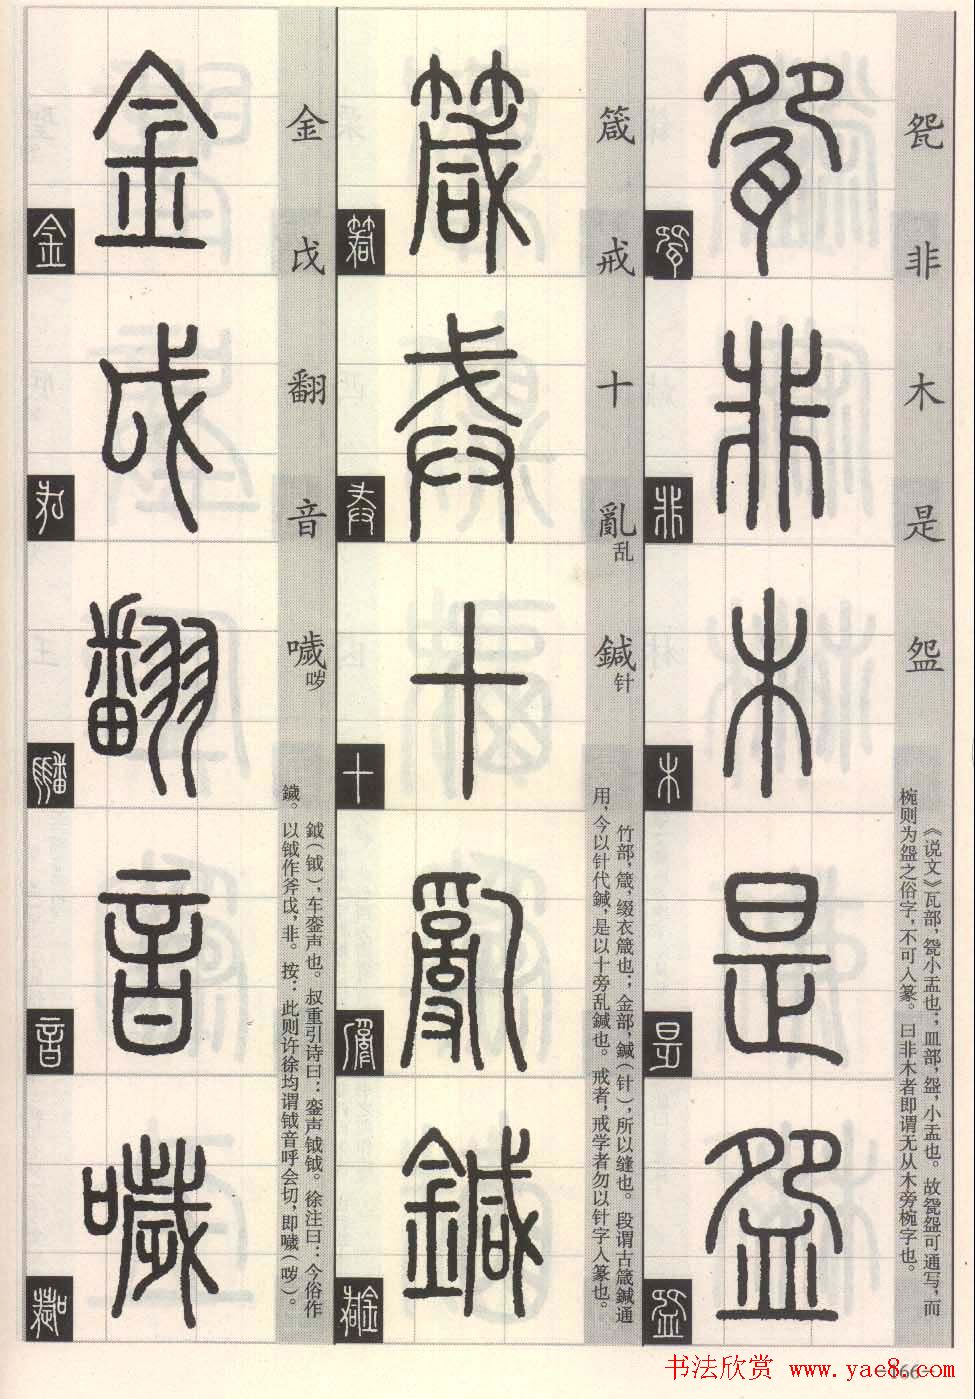 盌非木是盌
《说文》瓦部，㼝小盂也；皿部，盌，小盂也。故㼝盌可通写，而
椀则为盌之俗字，不可入篆。曰非木者即谓无从木旁椀字也。
箴戒十亂乱鍼针
竹部，箴，缀衣箴也；金部，鍼（针），所以缝也。段谓古箴鍼通
用，今以针代鍼，是以十旁乱鍼也。戒者，戒学者勿以针字入篆也。
金戉翻音噦哕
鉞（钺），车銮声也。叔重引诗曰：銮声钺钺。徐注曰：今俗作
鐬。以钺作斧戉，非。按：此则许徐均谓钺音呼会切，即噦（哕）。
书法欣赏 www.yac8.com
166